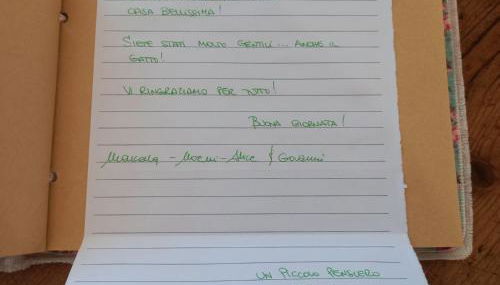 CASA BELLISSIMA!
SIETE STATI MOLTO GENTILI... ANCHE IL
GATTO!
VI RINGRAZIAMO PER TUTTO!
BUONA GIORNATA!
- Noemi - Alice & Giovanni
UN PICCOLO PENSIERO